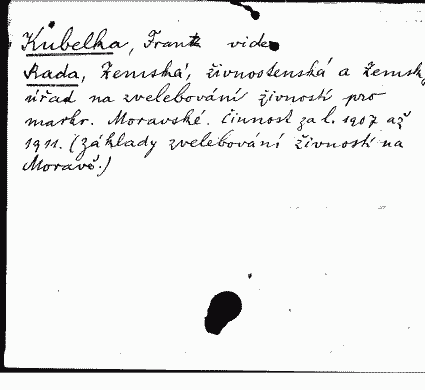 Kubelka, Frant. vide
Rada, Zemská, živnostenská a Zemský
úřad na zvelebování živností pro
markr. Moravské. Činnost za l. 1907 až
1911. (základy zvelebování živností na
Moravě.)